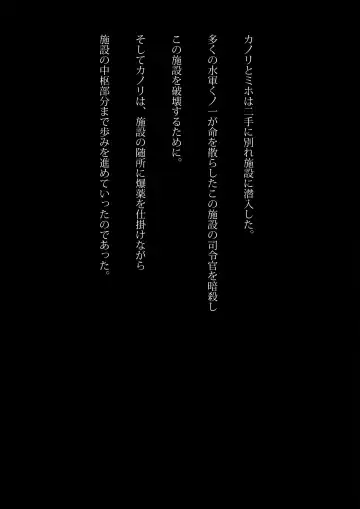 カノリとミホは二手に別れ施設に潜入した。
多くの水軍くノ一が命を散らしたこの施設の司令官を暗殺し
この施設を破壊するために。
そしてカノリは、施設の随所に爆薬を仕掛けながら
施設の中枢部分まで歩みを進めていったのであった。